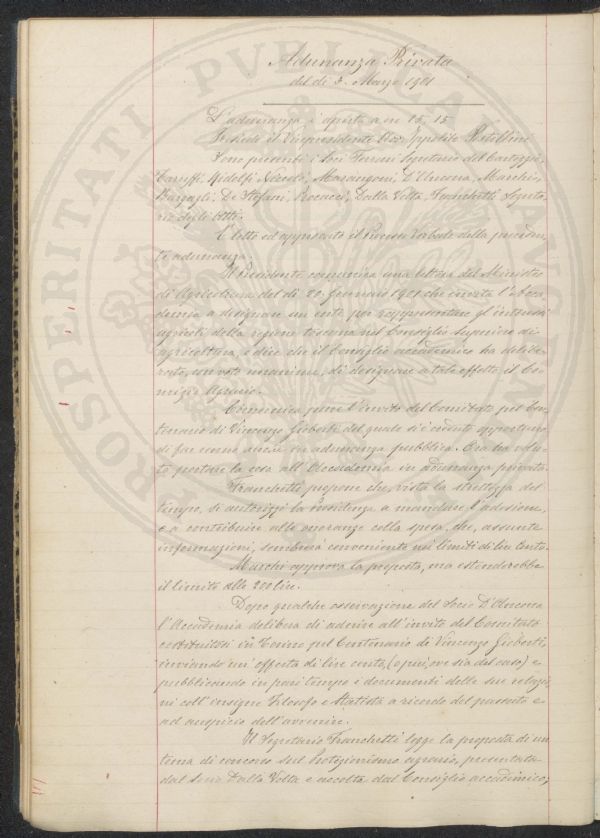 PROSPERITATI PVBLICAE AVGENDAE
Adunanza Privata
del dì 3. Marzo 1901
L'adunanza è aperta a ore 15,15
Presiede il Vicepresidente Ippolito Pestellini
Sono presenti i Soci Ferrari Segretario del Carteggio,
Caruffi, Ridolfi Niccolò, Marangoni, D'Ancona, Marchi,
Bargagli, De Stefani, Dalla Volta, Franchetti Segreta-
rio degli Atti.
È letto ed approvato il Processo Verbale della preceden-
te adunanza.
Il Presidente comunica una lettera del Ministro
di Agricoltura del dì 20. Gennaio 1901 che invita l'Acca-
demia a designare un ente per rappresentare gl'interessi
agricoli della regione toscana nel Consiglio Superiore di
agricoltura, e dice che il Consiglio accademico ha delibe-
rato, con voto unanime, di designare a tale effetto il Co-
mizio Agrario.
Comunica pure l'invito del Comitato pel Cen-
tenario di Vincenzo Gioberti del quale si è creduto opportuno
di far cenno anche in adunanza pubblica. Ora ha volu-
to portare la cosa all'Accademia in adunanza privata.
Franchetti propone che, vista la strettezza del
tempo, si autorizzi la Presidenza a mandare l'adesione,
e a contribuire alle onoranze colla spesa che, assunte
informazioni, sembrerà conveniente nei limiti di lire cento.
Marchi approva la proposta, ma estenderebbe
il limite alle 200 lire.
Dopo qualche osservazione del Socio D'Ancona
l'Accademia delibera di aderire all'invito del Comitato
costituitosi in Torino pel Centenario di Vincenzo Gioberti,
inviando un'offerta di lire cento, (o più, ove sia del caso) e
pubblicando in pari tempo i documenti delle sue relazio-
ni coll'insigne Filosofo e Statista a ricordo del passato e
ad auspicio dell'avvenire.
Il Segretario Franchetti legge la proposta di un
tema di concorso sul Protezionismo agrario, presentata
dal Socio Dalla Volta e accolta dal Consiglio accademico,